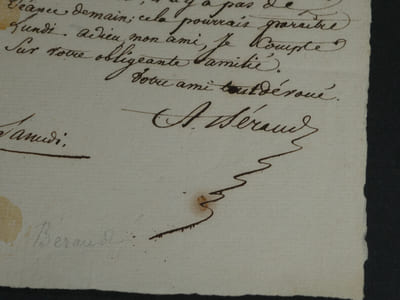 y a pas de
Séance demain; cela pourrais paroitre
Lundi. adieu mon ami, Je Compte
Sur votre obligeante amitié.
Votre ami tout dévoué.
A. Béraud
Samedi.
Béraud